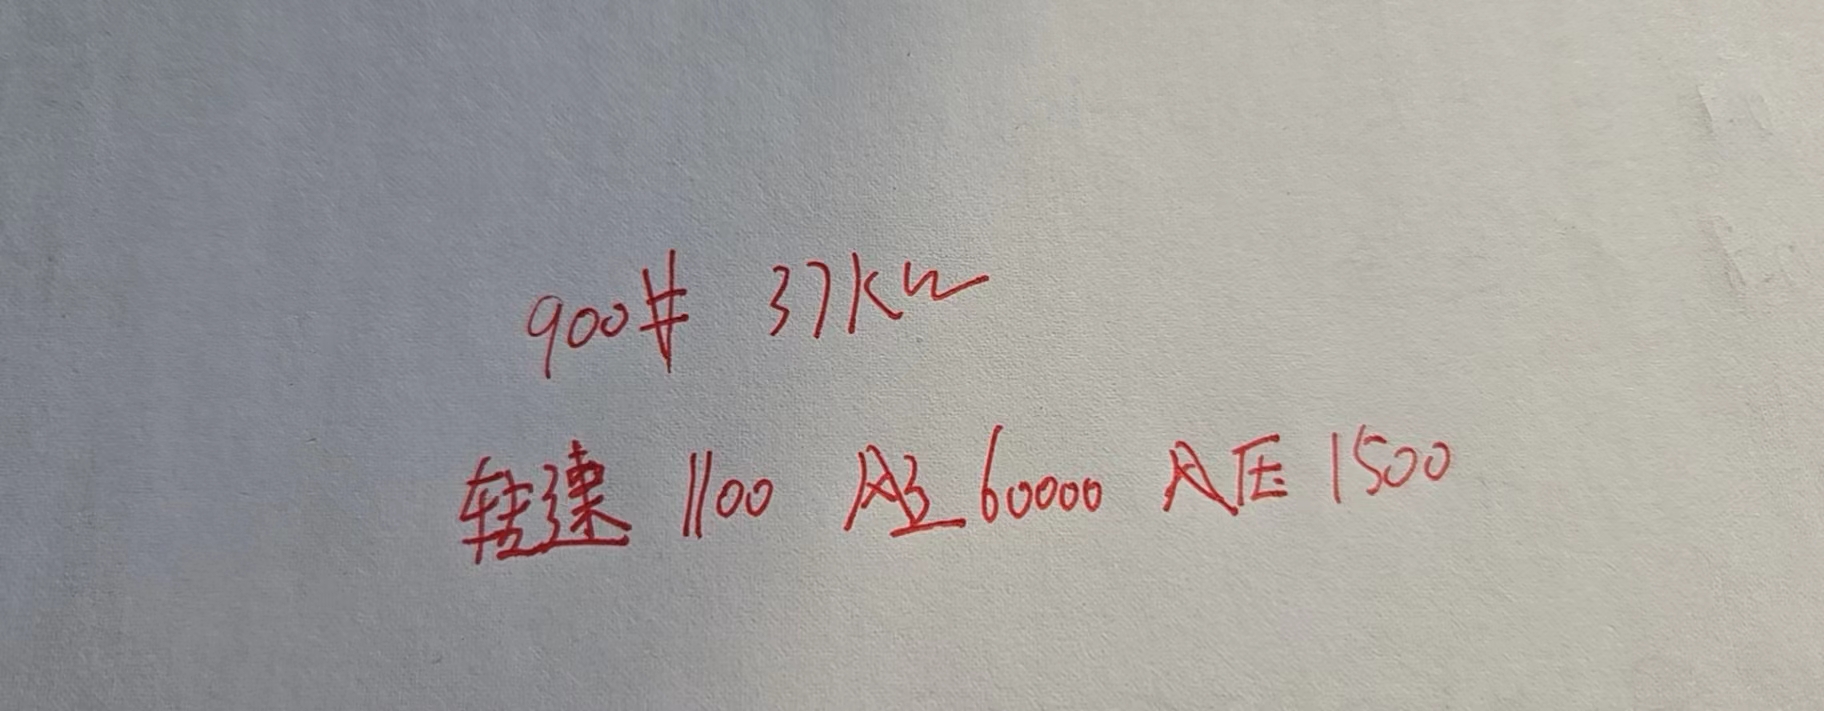 900# 37kw
转速 1100 风量 60000 风压 1500